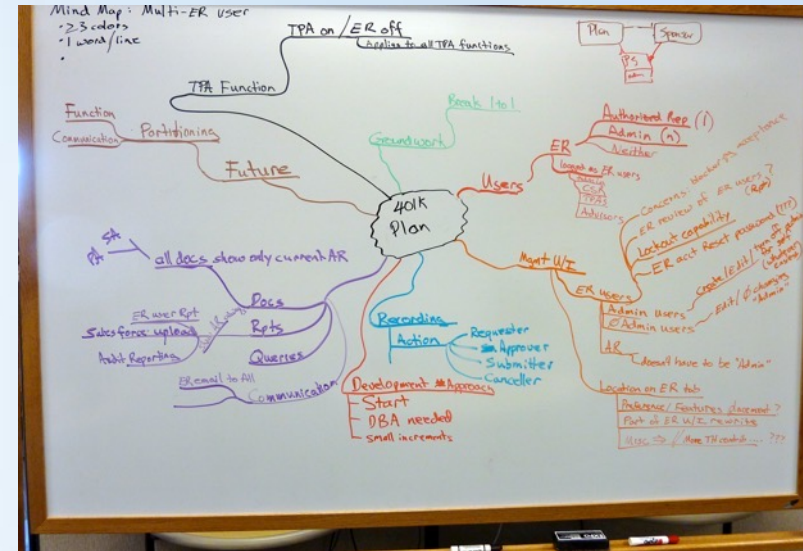 Mind Map: Multi-ER user
·2-3 colors
·1 word/line
TPA on / ER off
Applies to all TPA functions
TPA Function
Plan
Sponsor
PS
Function
Communication
Partitioning
Future
Break 1 to 1
Groundwork
Users
ER
Authorized Rep (1)
Admin (n)
Neither
ER users
CSA
TPAs
Advisors
401k
Plan
Mgmt U/I
Concerns:
acceptance
ER review of ER users?
(Rpt)
Lockout capability
ER acct Reset password (???)
ER users
Admin users
Create/Edit/turn off
∅ Admin users
Edit/∅ changing
"Admin"
AR
doesn't have to be "Admin"
Location on ER tab
Preference/Features placement?
Part of ER U/I rewrite
SA
PA
all docs show only current AR
Docs
ER user Rpt
Salesforce upload
Audit Reporting
Rpts
Queries
ER email to All
Communication
Recording
Action
Requester
Approver
Submitter
Canceller
Development Approach
Start
DBA needed
small increments